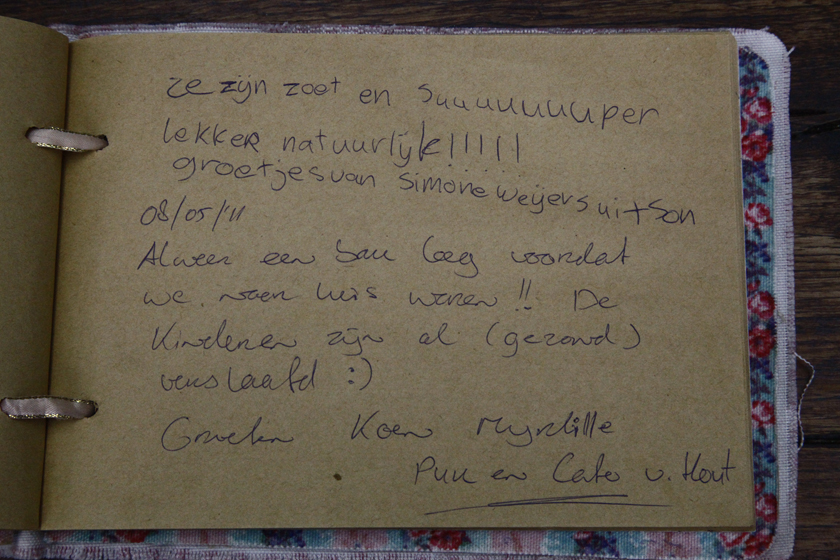 ze zijn zoet en suuuuuuuper
lekker natuurlijk!!!!!
groetjes van Simone Weijers uit Son
08/05/'11
Alweer een bak leeg voordat
we naar huis waren!! De
Kinderen zijn al (gezond)
verslaafd :)
Groeten Koen Myrtille
Puk en Cato v. Hout